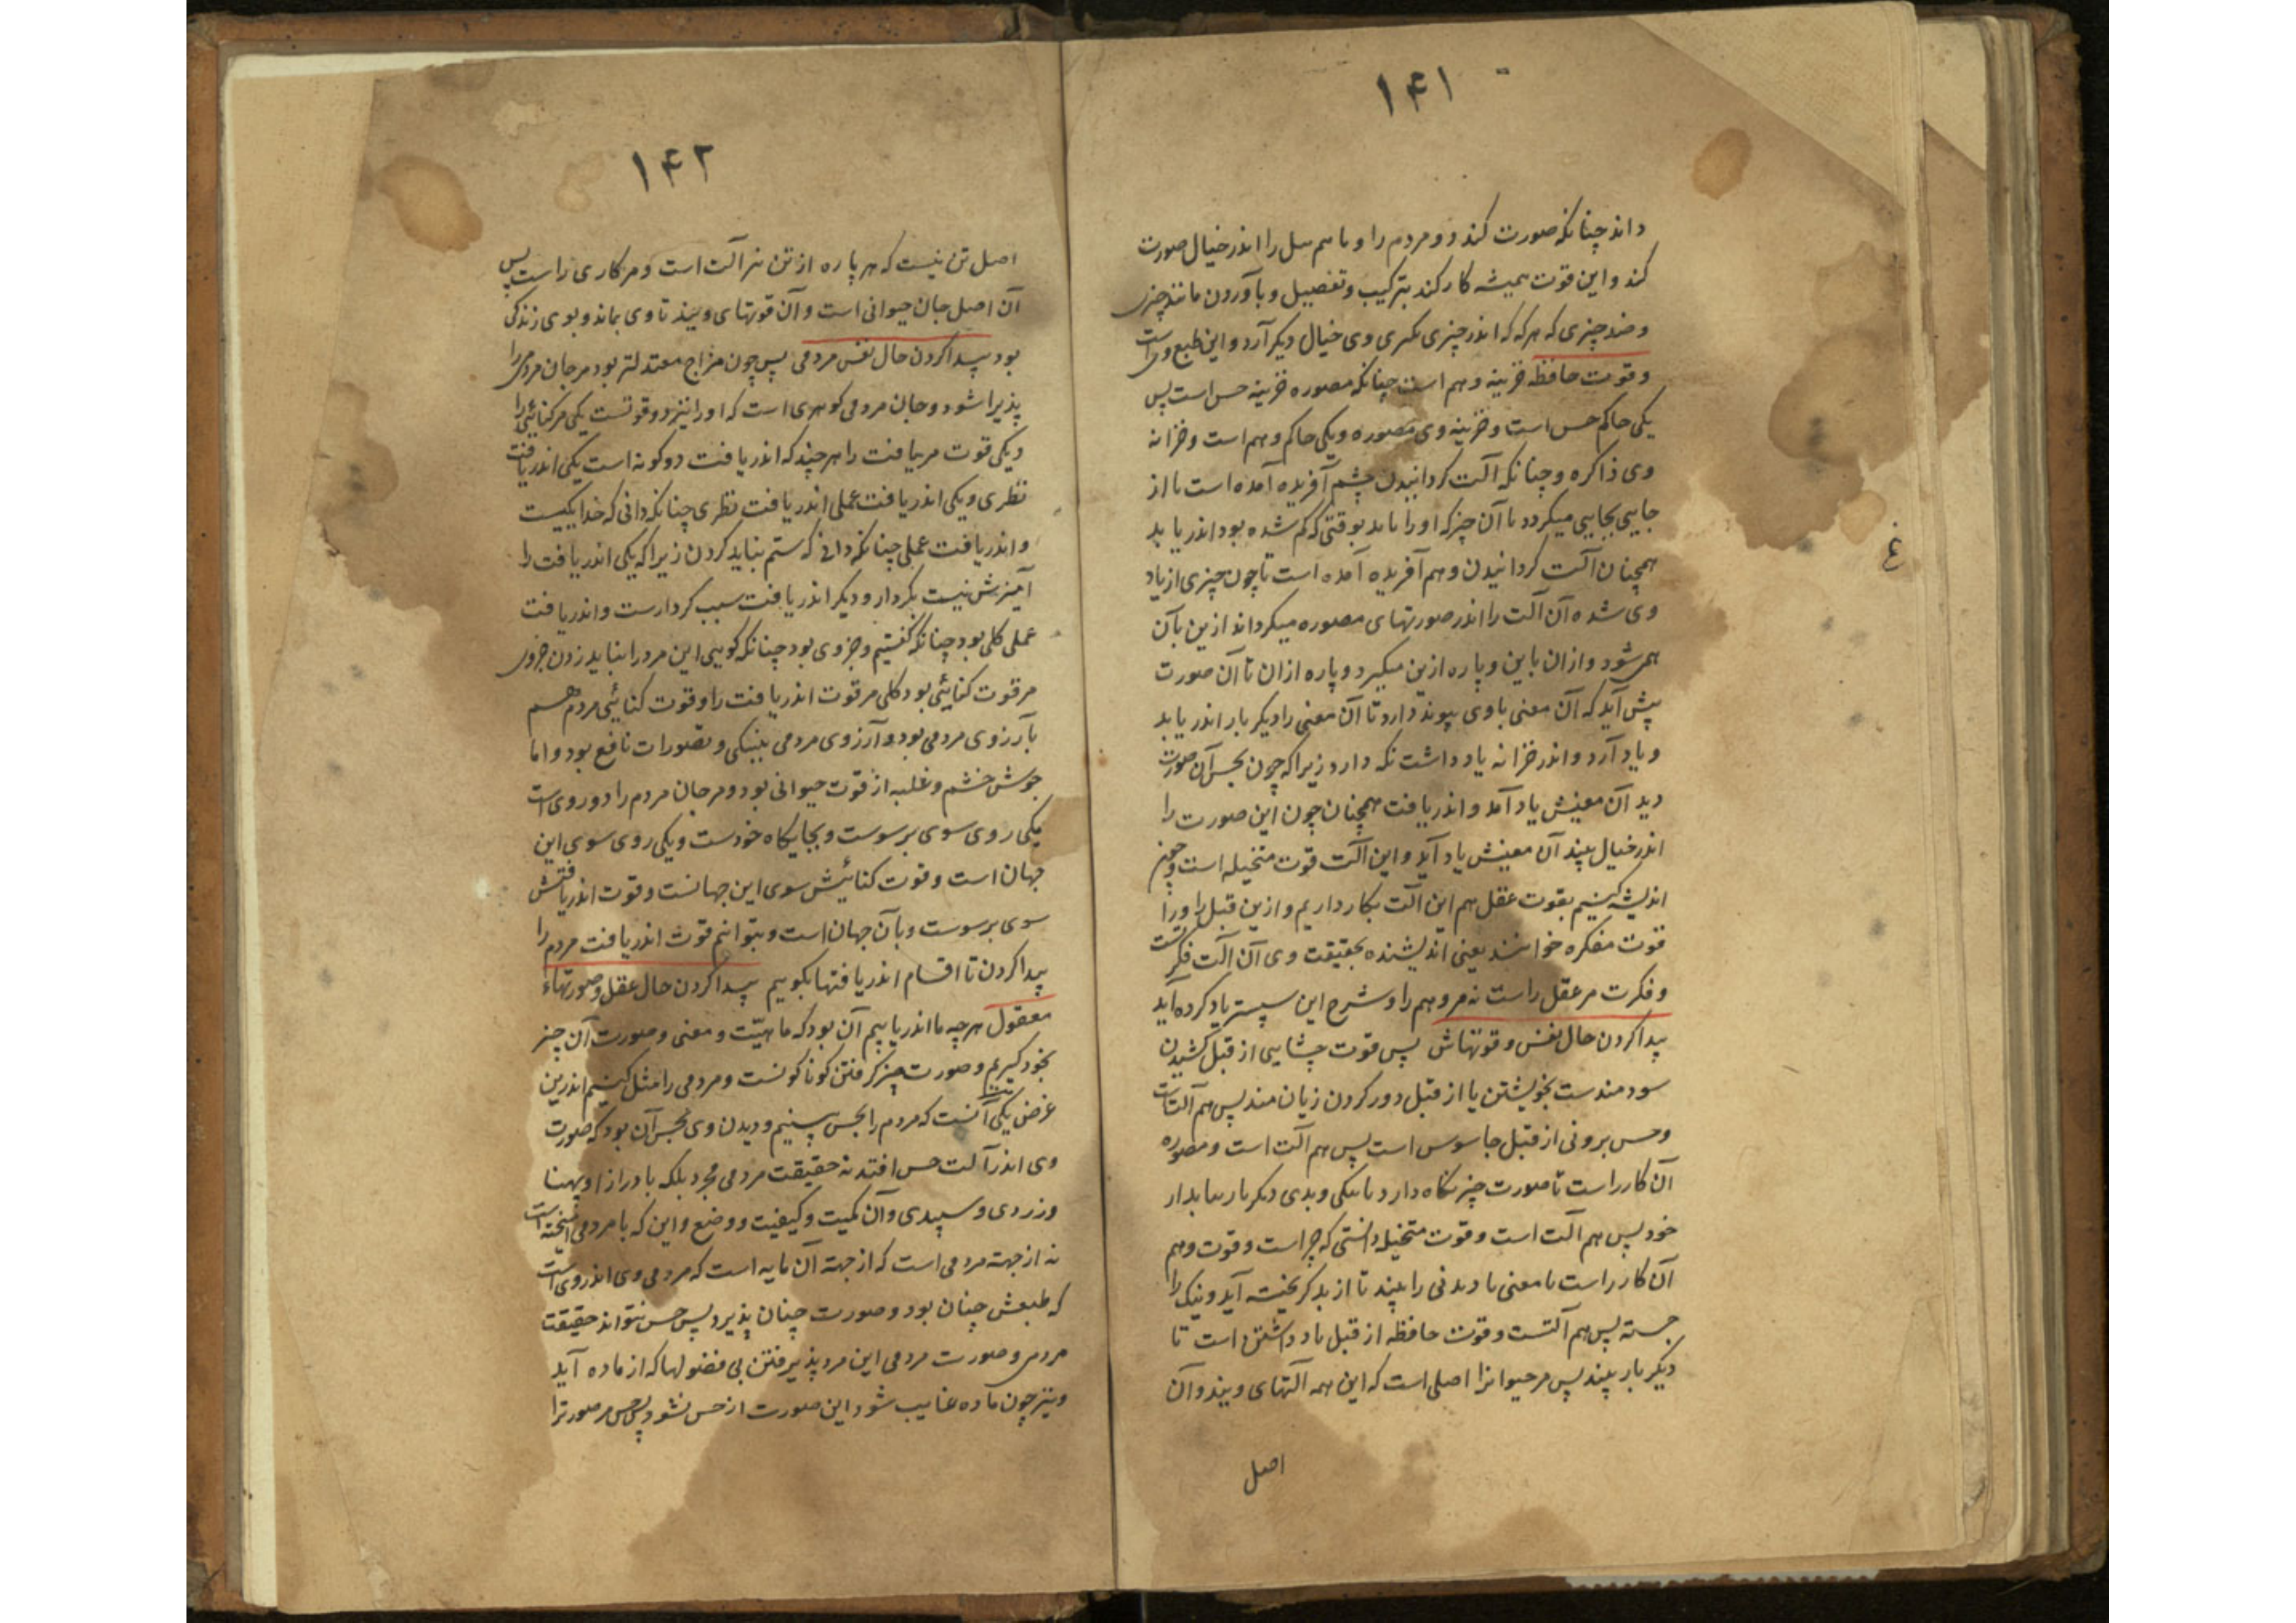 ۱۴۱
داند چنانکه صورت کند دو مردم را و باهم سل را اندر خیال صورت
کند و این قوت همیشه کار کند بترکیب و تفصیل و بآوردن مانند چیزی
و ضد چیزی که هر که که اندر چیزی نکری وی خیال دیکر آرد و این طبع وی است
و قوت حافظه خزینه وهم است چنانکه مصوره خزینه حس است پس
یکی حاکم حس است و خزینه وی مصوره و یکی حاکم وهم است و خزانه
وی ذاکره و چنانکه آلت کردانیدن چشم آفریده آمده است تا از
جایی بجایی میکردد تا آن چیز که او را باید بوقتی که کم شده بود اندر یابد
همچنان آلت کردانیدن وهم آفریده آمده است تا چون چیزی از یاد
وی شده آن آلت را اندر صورتهای مصوره میکرداند ازین بآن
همی شود و ازان باین و پاره ازین میکیرد و پاره ازان تا آن صورت
پیش آید که آن معنی با وی پیوند دارد تا آن معنی را دیکر بار اندر یابد
و یاد آرد و اندر خزانه یاد داشت نکه دارد زیرا که چون بحس آن صورت
دید آن معینش یاد آمد و اندر یافت همچنان چون این صورت را
اندر خیال بیند آن معینش یاد آید و این آلت قوت متخیله است و چون
اندیشه کنیم بقوت عقل هم این آلت بکار داریم و ازین قبل را او را
قوت مفکره خوانند یعنی اندیشنده بحقیقت وی آن آلت فکرتست
و فکرت مر عقل راست نه مر وهم را و شرح این سپستر یاد کرده آید
پیدا کردن حال نفس و قوتهاش پس قوت چشایی از قبل کشیدن
سودمندست بخویشتن یا از قبل دور کردن زیان مند پس هم آلتست
و حس برونی از قبل جاسوس است پس هم آلت است و مصوره
آن کار راست تا صورت چیز نکاه دارد تا نیکی و بدی دیکر بار بیابد از
خود پس هم آلت است و قوت متخیله دانستی که چراست و قوت وهم
آن کار راست تا معنی نادیدنی را بیند تا از بد کریخته آید و نیک را
جسته پس هم آلتست و قوت حافظه از قبل یاد داشتن است تا
دیکر بار بیند پس مر حیوانرا اصلی است که این همه آلتهای ویند و آن
اصل
۱۴۲
اصل تن نیست که هر پاره از تن نیز آلت است و مر کاری راست پس
آن اصل جان حیوانی است و آن قوتهای ویند تا وی بماند و بوی زندکی
بود پیدا کردن حال نفس مردمی پس چون مزاج معتدلتر بود مر جان مردمی را
پذیرا شود و جان مردمی کوهری است که او را نیز دو قوتست یکی مر کنایی را
و یکی قوت مر یافت را هر چند که اندر یافت دو کونه است یکی اندر یافت
نظری و یکی اندر یافت عملی اندر یافت نظری چنانکه دانی که خدا یکیست
و اندر یافت عملی چنانکه دانی که ستم نباید کردن زیرا که یکی اندر یافت را
آمیزش نیست بکردار و دیکر اندر یافت سبب کردارست و اندر یافت
عملی کلی بود چنانکه کفتیم و جزوی بود چنانکه کویی این مرد را نباید زدن جزوی
مر قوت کنایی بود کلی مر قوت اندر یافت را و قوت کنایی مردم هم
بآرزوی مردمی بود و آرزوی مردمی بنیکی و تصورات نافع بود و اما
جوش خشم و غلبه از قوت حیوانی بود و مر جان مردم را دو روی است
یکی روی سوی برسوست و بجایکاه خودست و یکی روی سوی این
جهان است و قوت کنائیش سوی این جهانست و قوت اندر یافتش
سوی برسوست و بآن جهان است و بتوانیم قوت اندر یافت مردم را
پیدا کردن تا اقسام اندر یافتها بکوییم پیدا کردن حال عقل و صورتهاء
معقول هر چه ما اندر یابیم آن بود که ماهیّت و معنی و صورت آن چیز
بخود کیریم و صورت چیز کرفتن کوناکونست و مردمی را مثل کنیم اندرین
غرض یکی آنست که مردم را بحس ببینیم و دیدن وی بحس آن بود که صورت
وی اندر آلت حس افتد نه حقیقت مردمی مجرد بلکه با درازا و پهنا
و زردی و سپیدی و آن کمیت و کیفیت و وضع و این که با مردمی آمیخته است
نه از جهته مردمی است که از جهته آن مایه است که مردمی وی اندر وی است
که طبعش چنان بود و صورت چنان پذیرد پس حس نتواند حقیقت
مردمی و صورت مردمی این مرد پذیرفتن بی فضولها که از ماده آید
و نیز چون ماده غایب شود این صورت از حس بشود پس حس مر صورترا